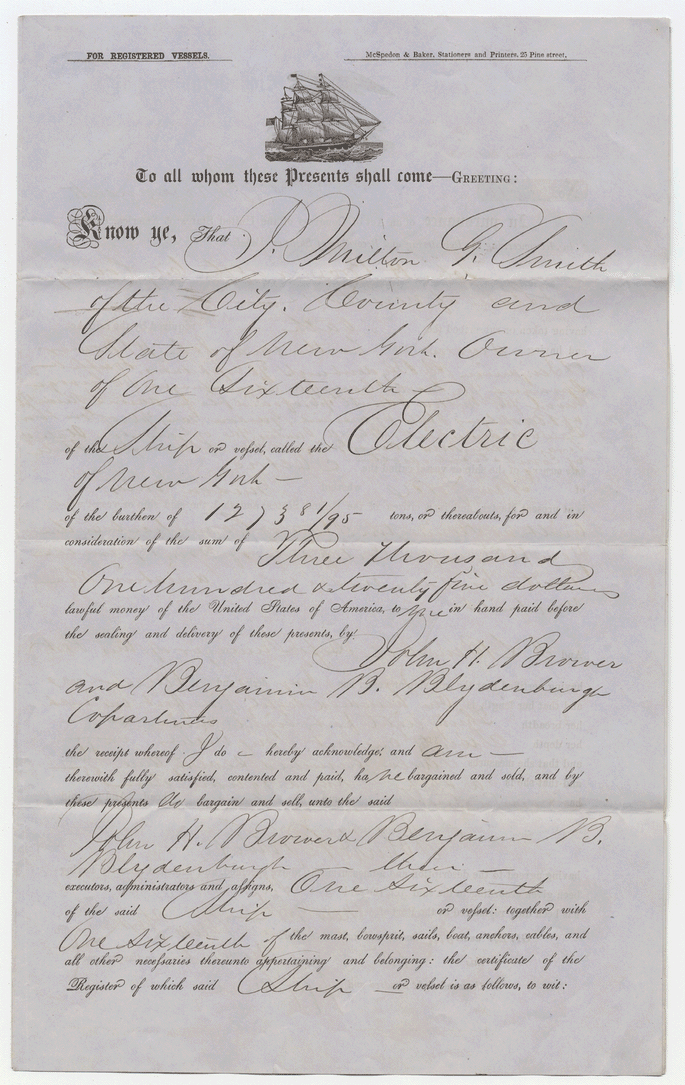 FOR REGISTERED VESSELS.
McSpedon & Baker, Stationers and Printers, 25 Pine street,
To all whom these Presents shall come—GREETING:
Know ye, That I, Milton G. Smith
of the City, County and
State of New York. Owner
of One Sixteenth
of the Ship or vessel, called the Electric
of New York —
of the burthen of 1273 81/95 tons, or thereabouts, for and in
consideration of the sum of Three thousand
One hundred & twenty five dollars
lawful money of the United States of America, to me in hand paid before
the sealing and delivery of these presents, by
John H. Brower
and Benjamin B. Blydenburgh
Copartners
the receipt whereof I do — hereby acknowledge, and am —
therewith fully satisfied, contented and paid, have bargained and sold, and by
these presents do bargain and sell, unto the said
John H. Brower & Benjamin B.
Blydenburgh — their —
executors, administrators and assigns, One sixteenth
of the said Ship — or vessel: together with
One sixteenth of the mast, bowsprit, sails, boat, anchors, cables, and
all other necessaries thereunto appertaining and belonging: the certificate of the
Register of which said Ship — or vessel is as follows, to wit: